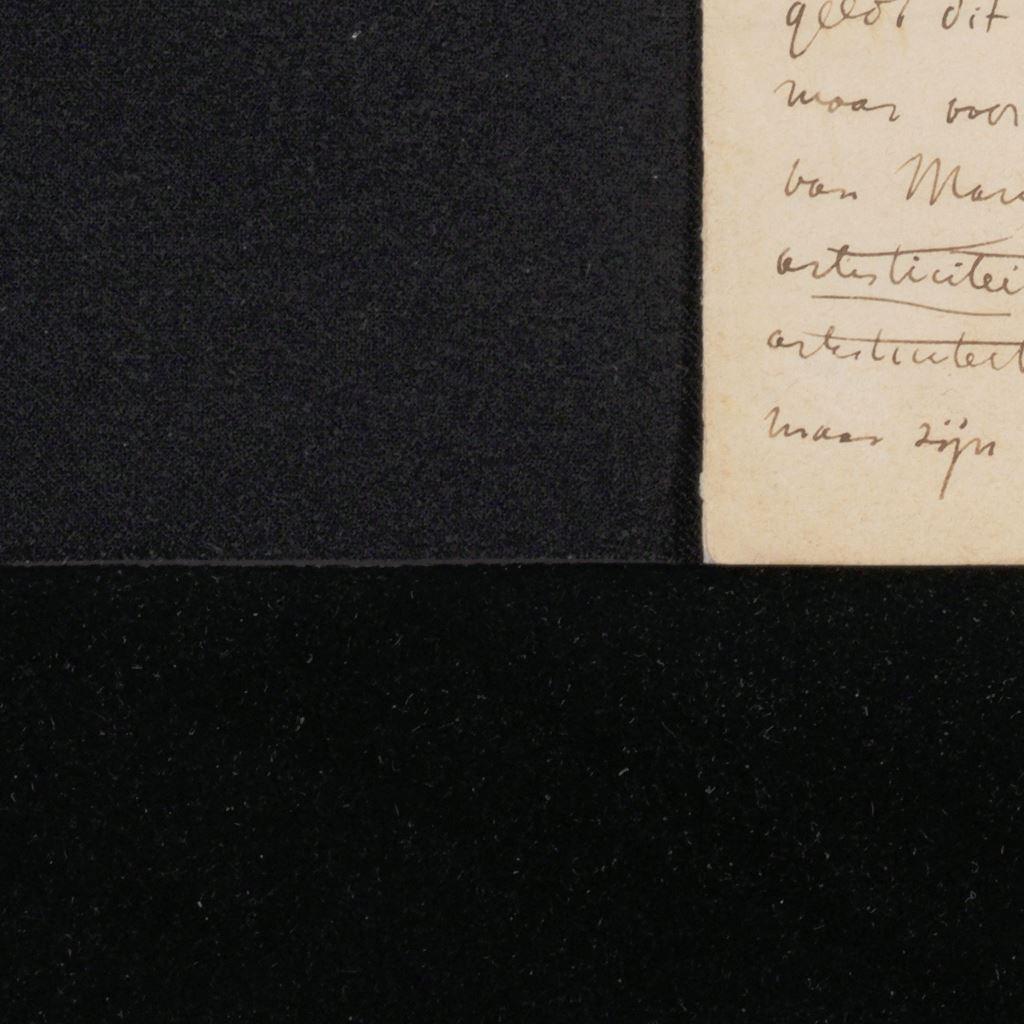 geldt dit
maar voor
van Mar
artisticitei
artisticiteit
maar zijn